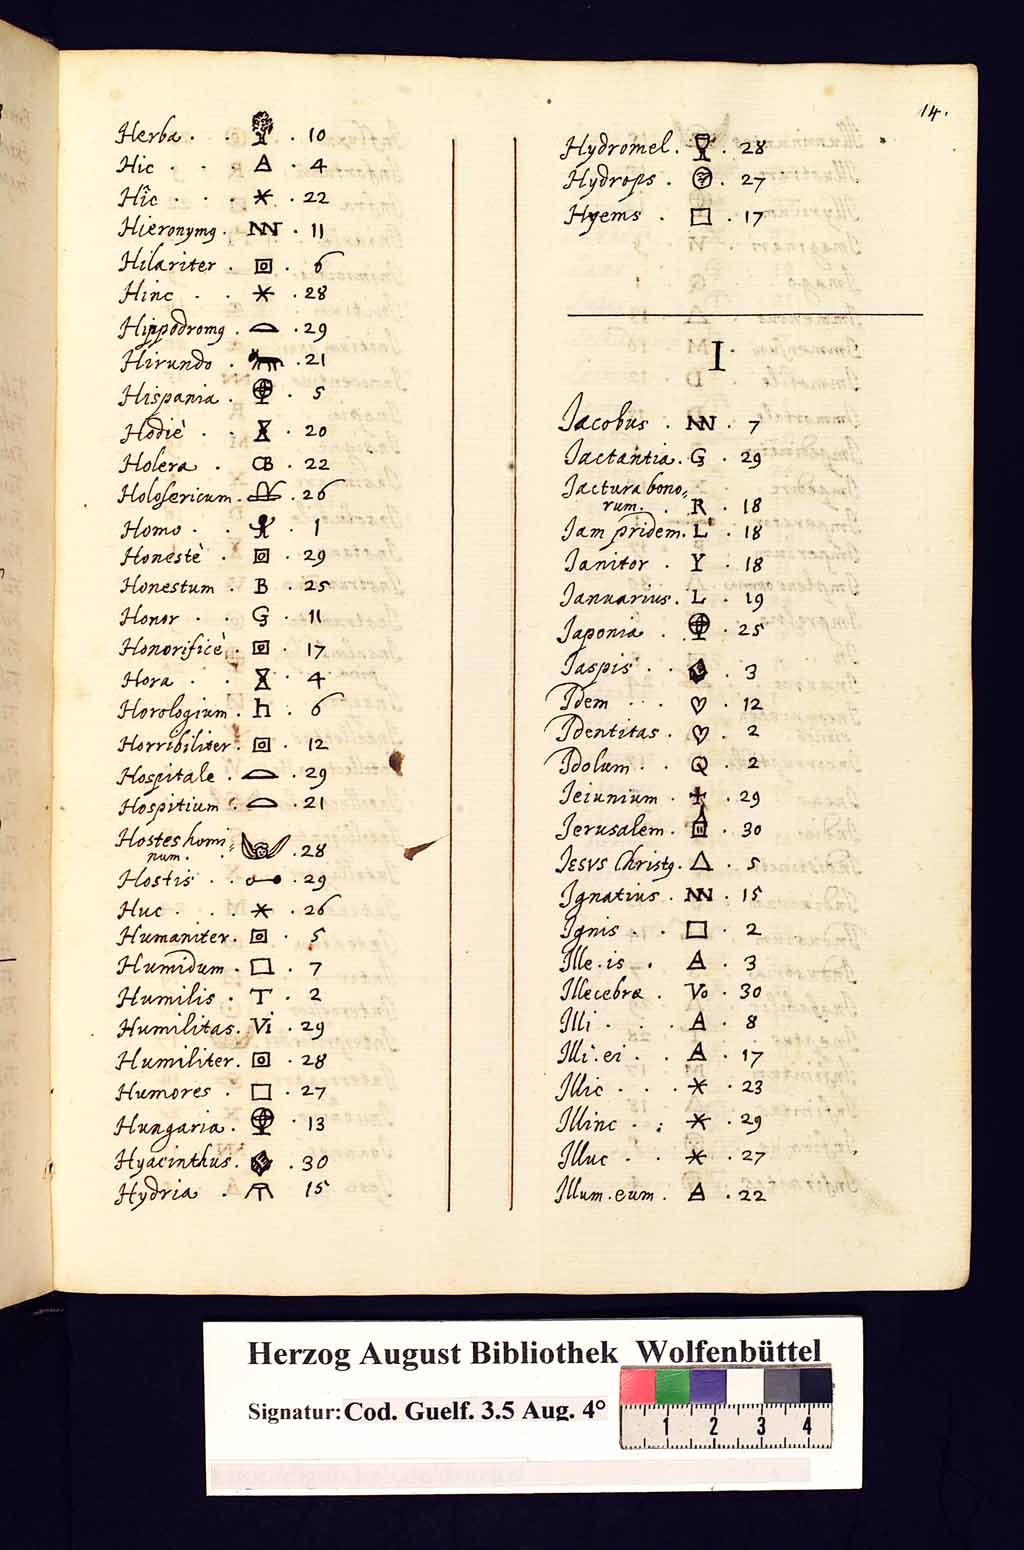 14.
Herba . . . 10
Hic . . . A . 4
Hîc . . . * . 22
Hieronymꝰ . NN . 11
Hilariter . . 6
Hinc . . * . 28
Hippodromꝰ . . 29
Hirundo . . 21
Hispania . . 5
Hodiè . . . 20
Holera . CB . 22
Holosericum . . 26
Homo . . . 1
Honestè . . 29
Honestum . B . 25
Honor . . G . 11
Honorificè . . 17
Hora . . . 4
Horologium . h . 6
Horribiliter . . 12
Hospitale . . 29
Hospitium . . 21
Hostes homi⸗
num . . . 28
Hostis . . . 29
Huc . . . * . 26
Humaniter . . 5
Humidum . . 7
Humilis . T . 2
Humilitas . Vi . 29
Humiliter . . 28
Humores . . 27
Hungaria . . 13
Hyacinthus . . 30
Hydria . . 15
Hydromel . . 28
Hydrops . . 27
Hyems . . 17
I
Iacobus . NN . 7
Iactantia . G . 29
Iactura bono⸗
rum . . R . 18
Iam pridem . L . 18
Ianitor . Y . 18
Ianuarius . L . 19
Iaponia . . 25
Iaspis . . . 3
Idem . . . ♡ . 12
Identitas . ♡ . 2
Idolum . . Q . 2
Ieiunium . ✝ . 29
Ierusalem . . 30
Iesvs Christꝰ . △ . 5
Ignatius . NN . 15
Ignis . . □ . 2
Ille . is . A . 3
Illecebræ . Vo . 30
Illi . . . A . 8
Illi . ei . . A . 17
Illic . . . * . 23
Illinc . . * . 29
Illuc . . * . 27
Illum . eum . A . 22
Herzog August Bibliothek Wolfenbüttel
Signatur: Cod. Guelf. 3.5 Aug. 4°
1 2 3 4